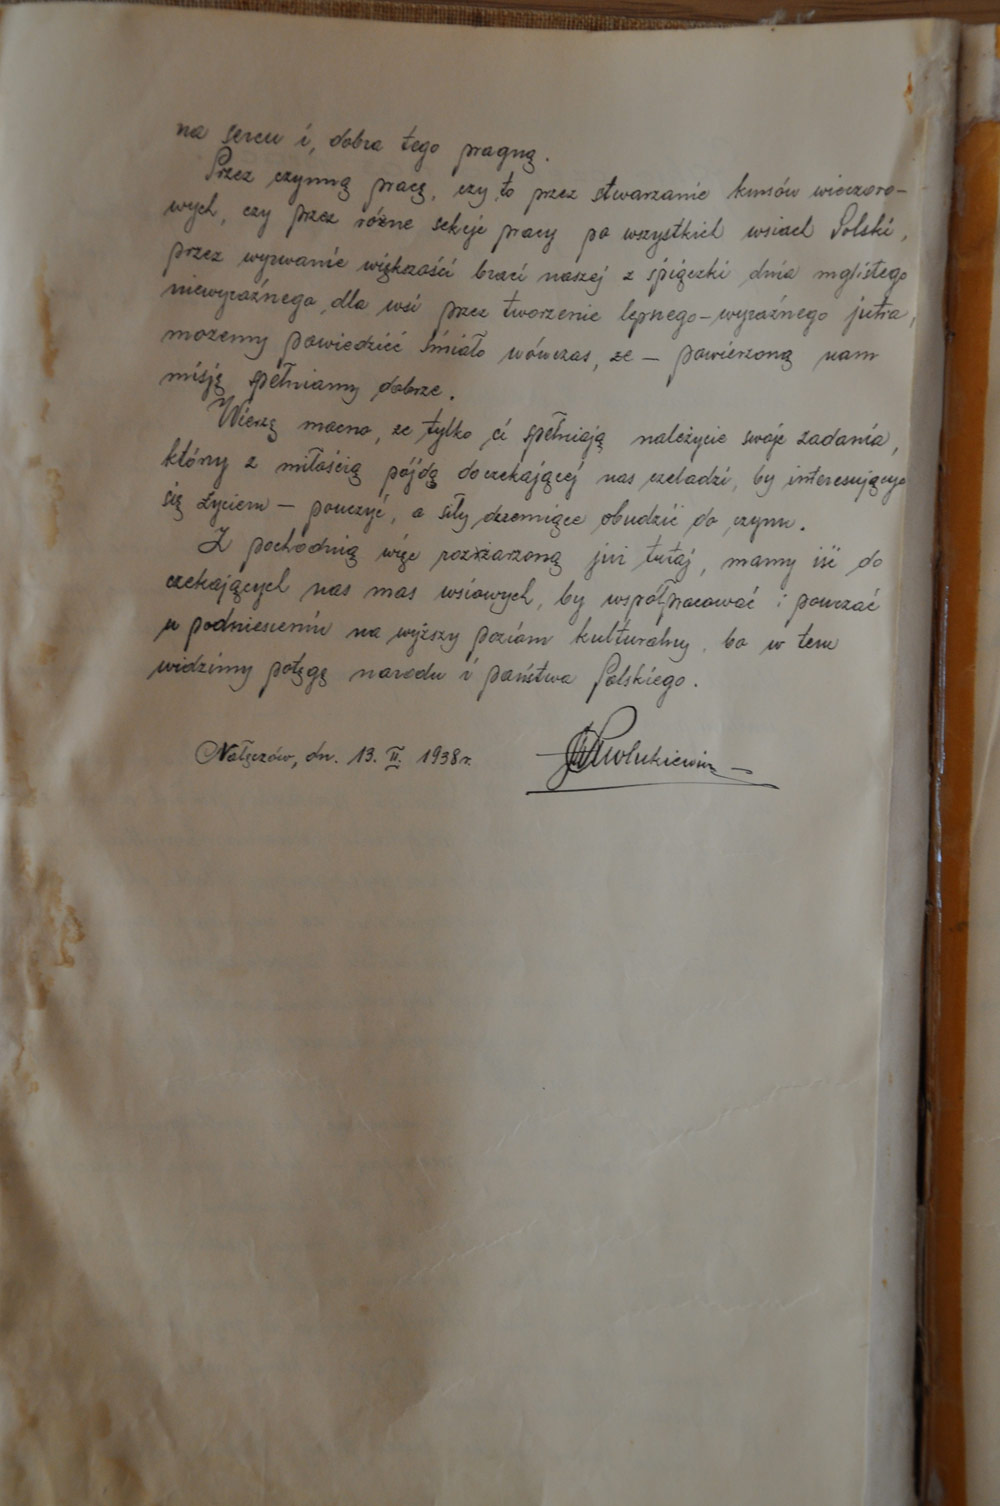 na sercu i, dobra tego pragną.
Przez czynną pracę, czy to przez stwarzanie kursów wieczoro-
wych, czy przez różne sekcje pracy po wszystkich wsiach Polski,
przez wyrwanie większości braci naszej z śpiączki dnia mglistego
niewyraźnego, dla wsi przez tworzenie lepnego-wyraźnego jutra,
możemy powiedzieć śmiało wówczas, że - powierzoną nam
misję spełniamy dobrze.
Wierzę mocno, że tylko ci spełniają należycie swoje zadania,
którzy z miłością pójdą do czekającej nas czeladzi, by interesującego
się życiem - pouczyć, a siły drzemiące obudzić do czynu.
Z pochodnią więc rozżarzoną już tutaj, mamy iść do
czekających nas mas wsiowych, by współpracować i pouczać
w podniesieniu na wyższy poziom kulturalny, bo w tem
widzimy potęgę narodu i państwa Polskiego.
Nałęczów, dn. 13. II. 1938 r.